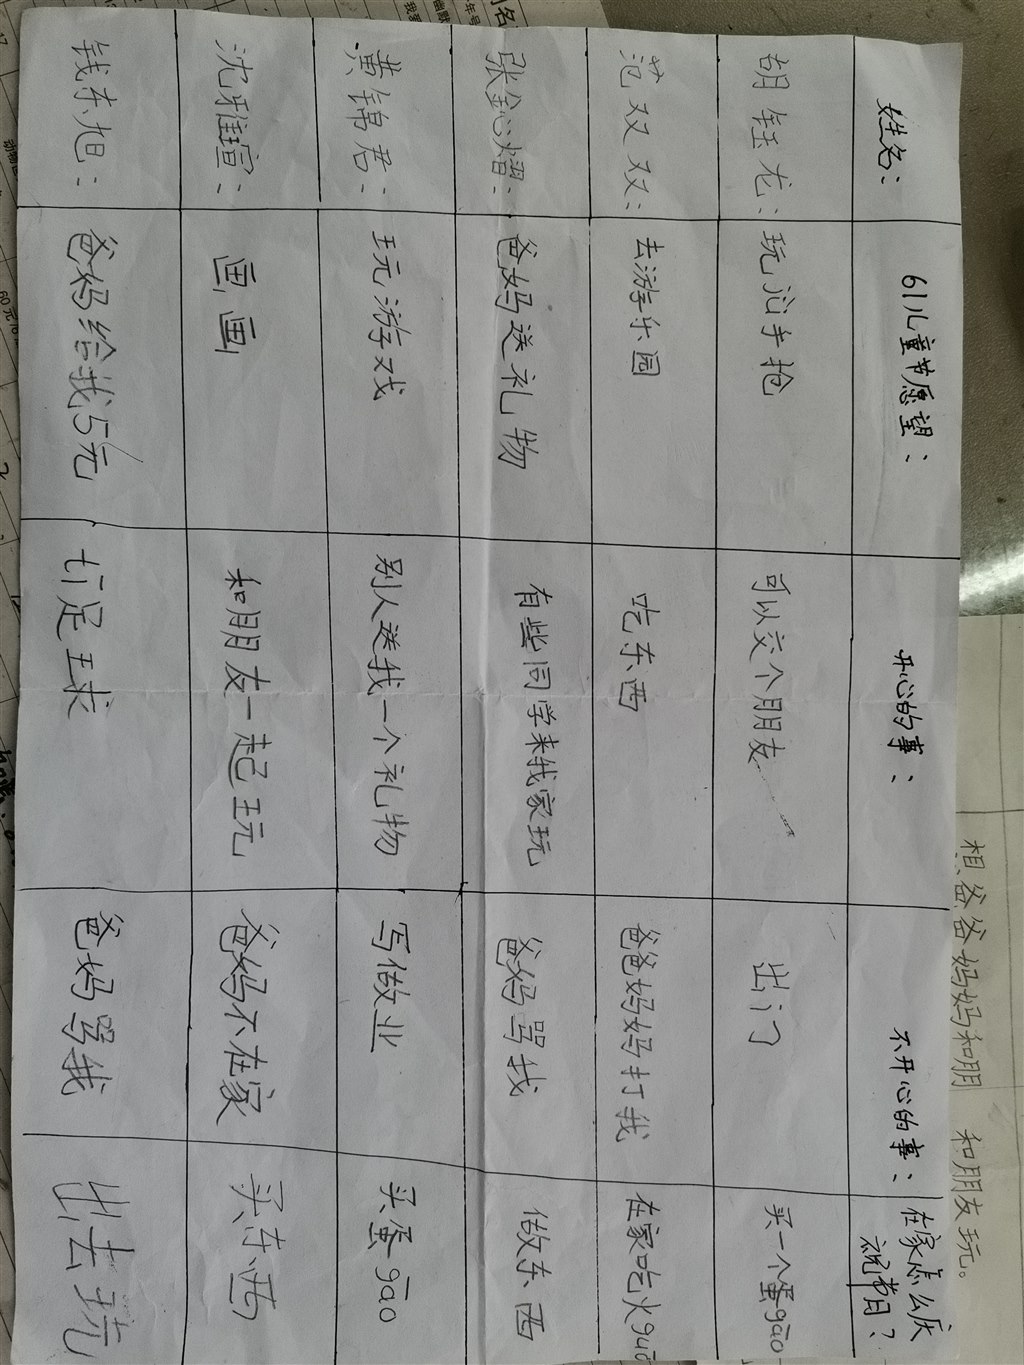 姓名： 61儿童节愿望： 开心的事： 不开心的事： 在家怎么庆祝节日？
胡钰龙： 玩 手抢 可以交个朋友 出门 买一个蛋gāo
范双双： 去游乐园 吃东西 爸爸妈妈打我 在家吃火guō
张 熠： 爸妈送礼物 有些同学来我家玩 爸妈骂我 做东西
黄锦君： 玩游戏 别人送我一个礼物 写做业 买蛋gāo
沈雅瑄： 画画 和朋友一起玩 爸妈不在家 买东西
钱东旭： 爸妈给我5元 打足球 爸妈骂我 出去玩
想爸爸妈妈和朋 和朋友玩。